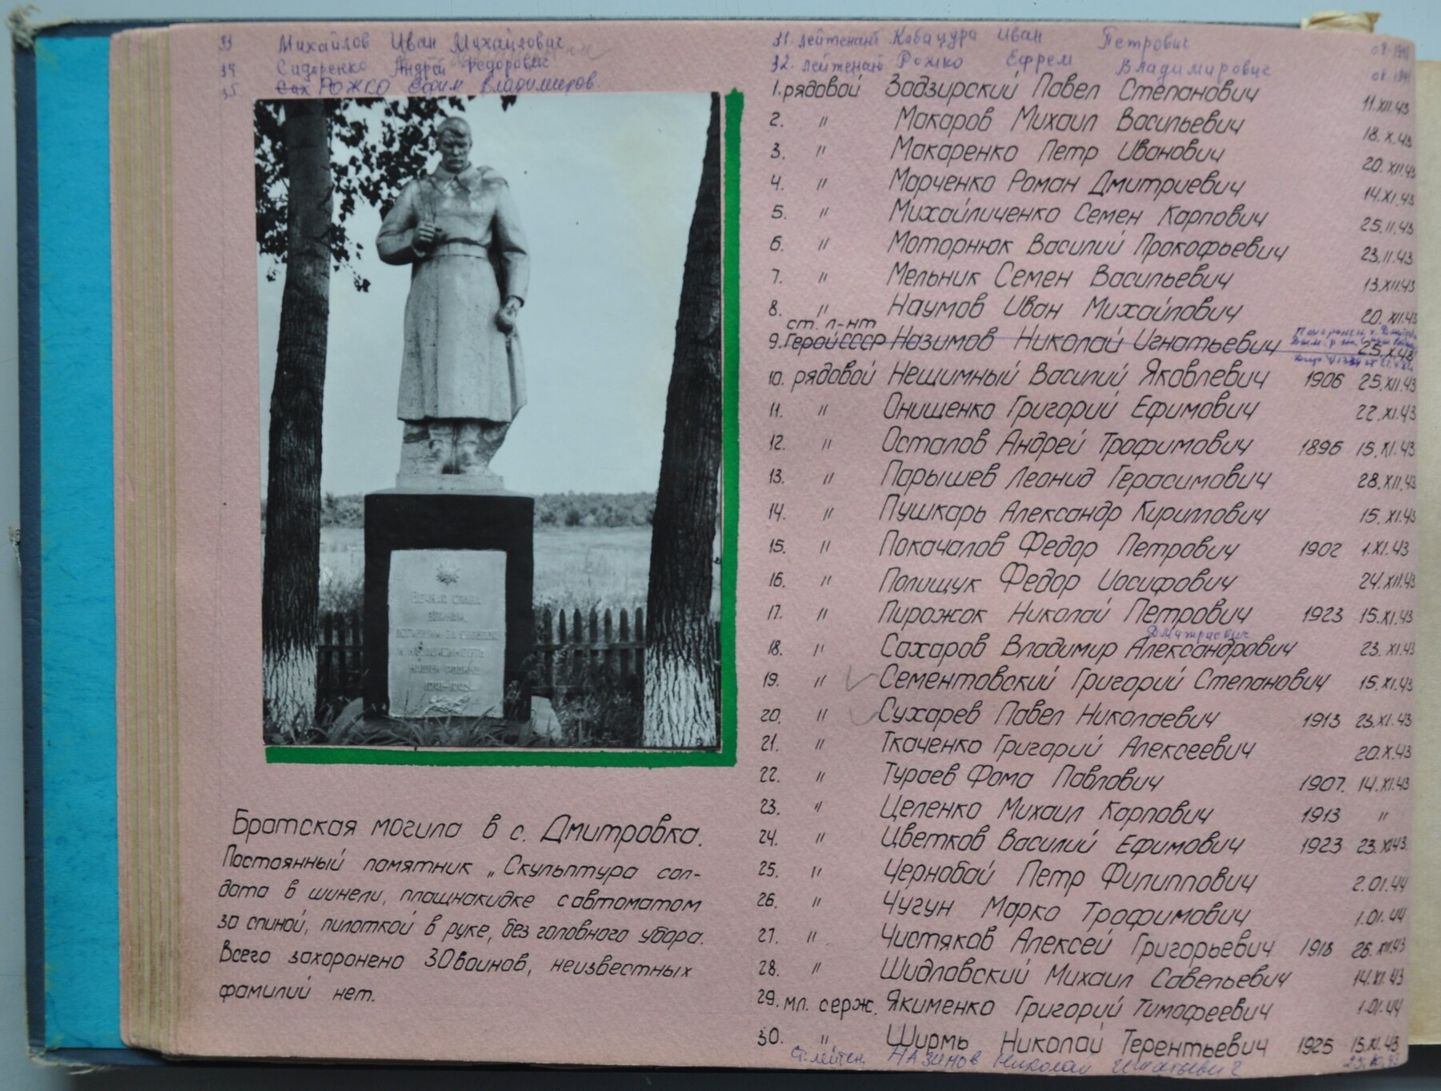 33 Михайлов Иван Михайлович
34 Сидоренко Андрей Федорович
35 Сах РОЖКО Ефим Владимиров.
ВЕЧНАЯ СЛАВА
Братская могила в с. Дмитровка.
Постоянный памятник „Скульптура сол-
дата в шинели, плащнакидке с автоматом
за спиной, пилоткой в руке, без головного убора.
Всего захоронено 30 воинов, неизвестных
фамилий нет.
31. лейтенант Кабацура Иван Петрович 08.1941
32. лейтенант Рожко Ефрем Владимирович 08.1941
1. рядовой Задзирский Павел Степанович 11.XII.43
2. " Макаров Михаил Васильевич 18.X.43
3. " Макаренко Петр Иванович 20.XII.43
4. " Марченко Роман Дмитриевич 14.XI.43
5. " Михайличенко Семен Карпович 25.11.43
6. " Моторнюк Василий Прокофьевич 23.11.43
7. " Мельник Семен Васильевич 13.XII.43
8. " Наумов Иван Михайлович 20.XII.43
ст. л-нт
9. Герой СССР Назимов Николай Игнатьевич 25.X.43
10. рядовой Нещимный Василий Яковлевич 1906 25.XII.43
11. " Онищенко Григорий Ефимович 22.XI.43
12. " Осталов Андрей Трофимович 1896 15.XI.43
13. " Парышев Леонид Герасимович 28.XII.43
14. " Пушкарь Александр Кириллович 15.XI.43
15. " Покачалов Федор Петрович 1902 1.XI.43
16. " Полищук Федор Иосифович 24.XII.43
17. " Пирожок Николай Петрович 1923 15.XI.43
Дмитриевич
18. " Сахаров Владимир Александрович 23.XI.43
19. " Сементовский Григорий Степанович 15.XI.43
20. " Сухарев Павел Николаевич 1913 23.XI.43
21. " Ткаченко Григорий Алексеевич 20.X.43
22. " Тураев Фома Павлович 1907. 14.XI.43
23. " Целенко Михаил Карпович 1913 "
24. " Цветков Василий Ефимович 1923 23.XI.43.
25. " Чернобай Петр Филиппович 2.01.44
26. " Чугун Марко Трофимович 1.01.44
27. " Чистяков Алексей Григорьевич 1918 26.XII.43
28. " Шидловский Михаил Савельевич 14.XI.43
29. мл. серж. Якименко Григорий Тимофеевич 1.01.44
30. " Ширмь Николай Терентьевич 1925 15.XI.43
Ст. лейтен НАЗИМОВ Николай Игнатьевич